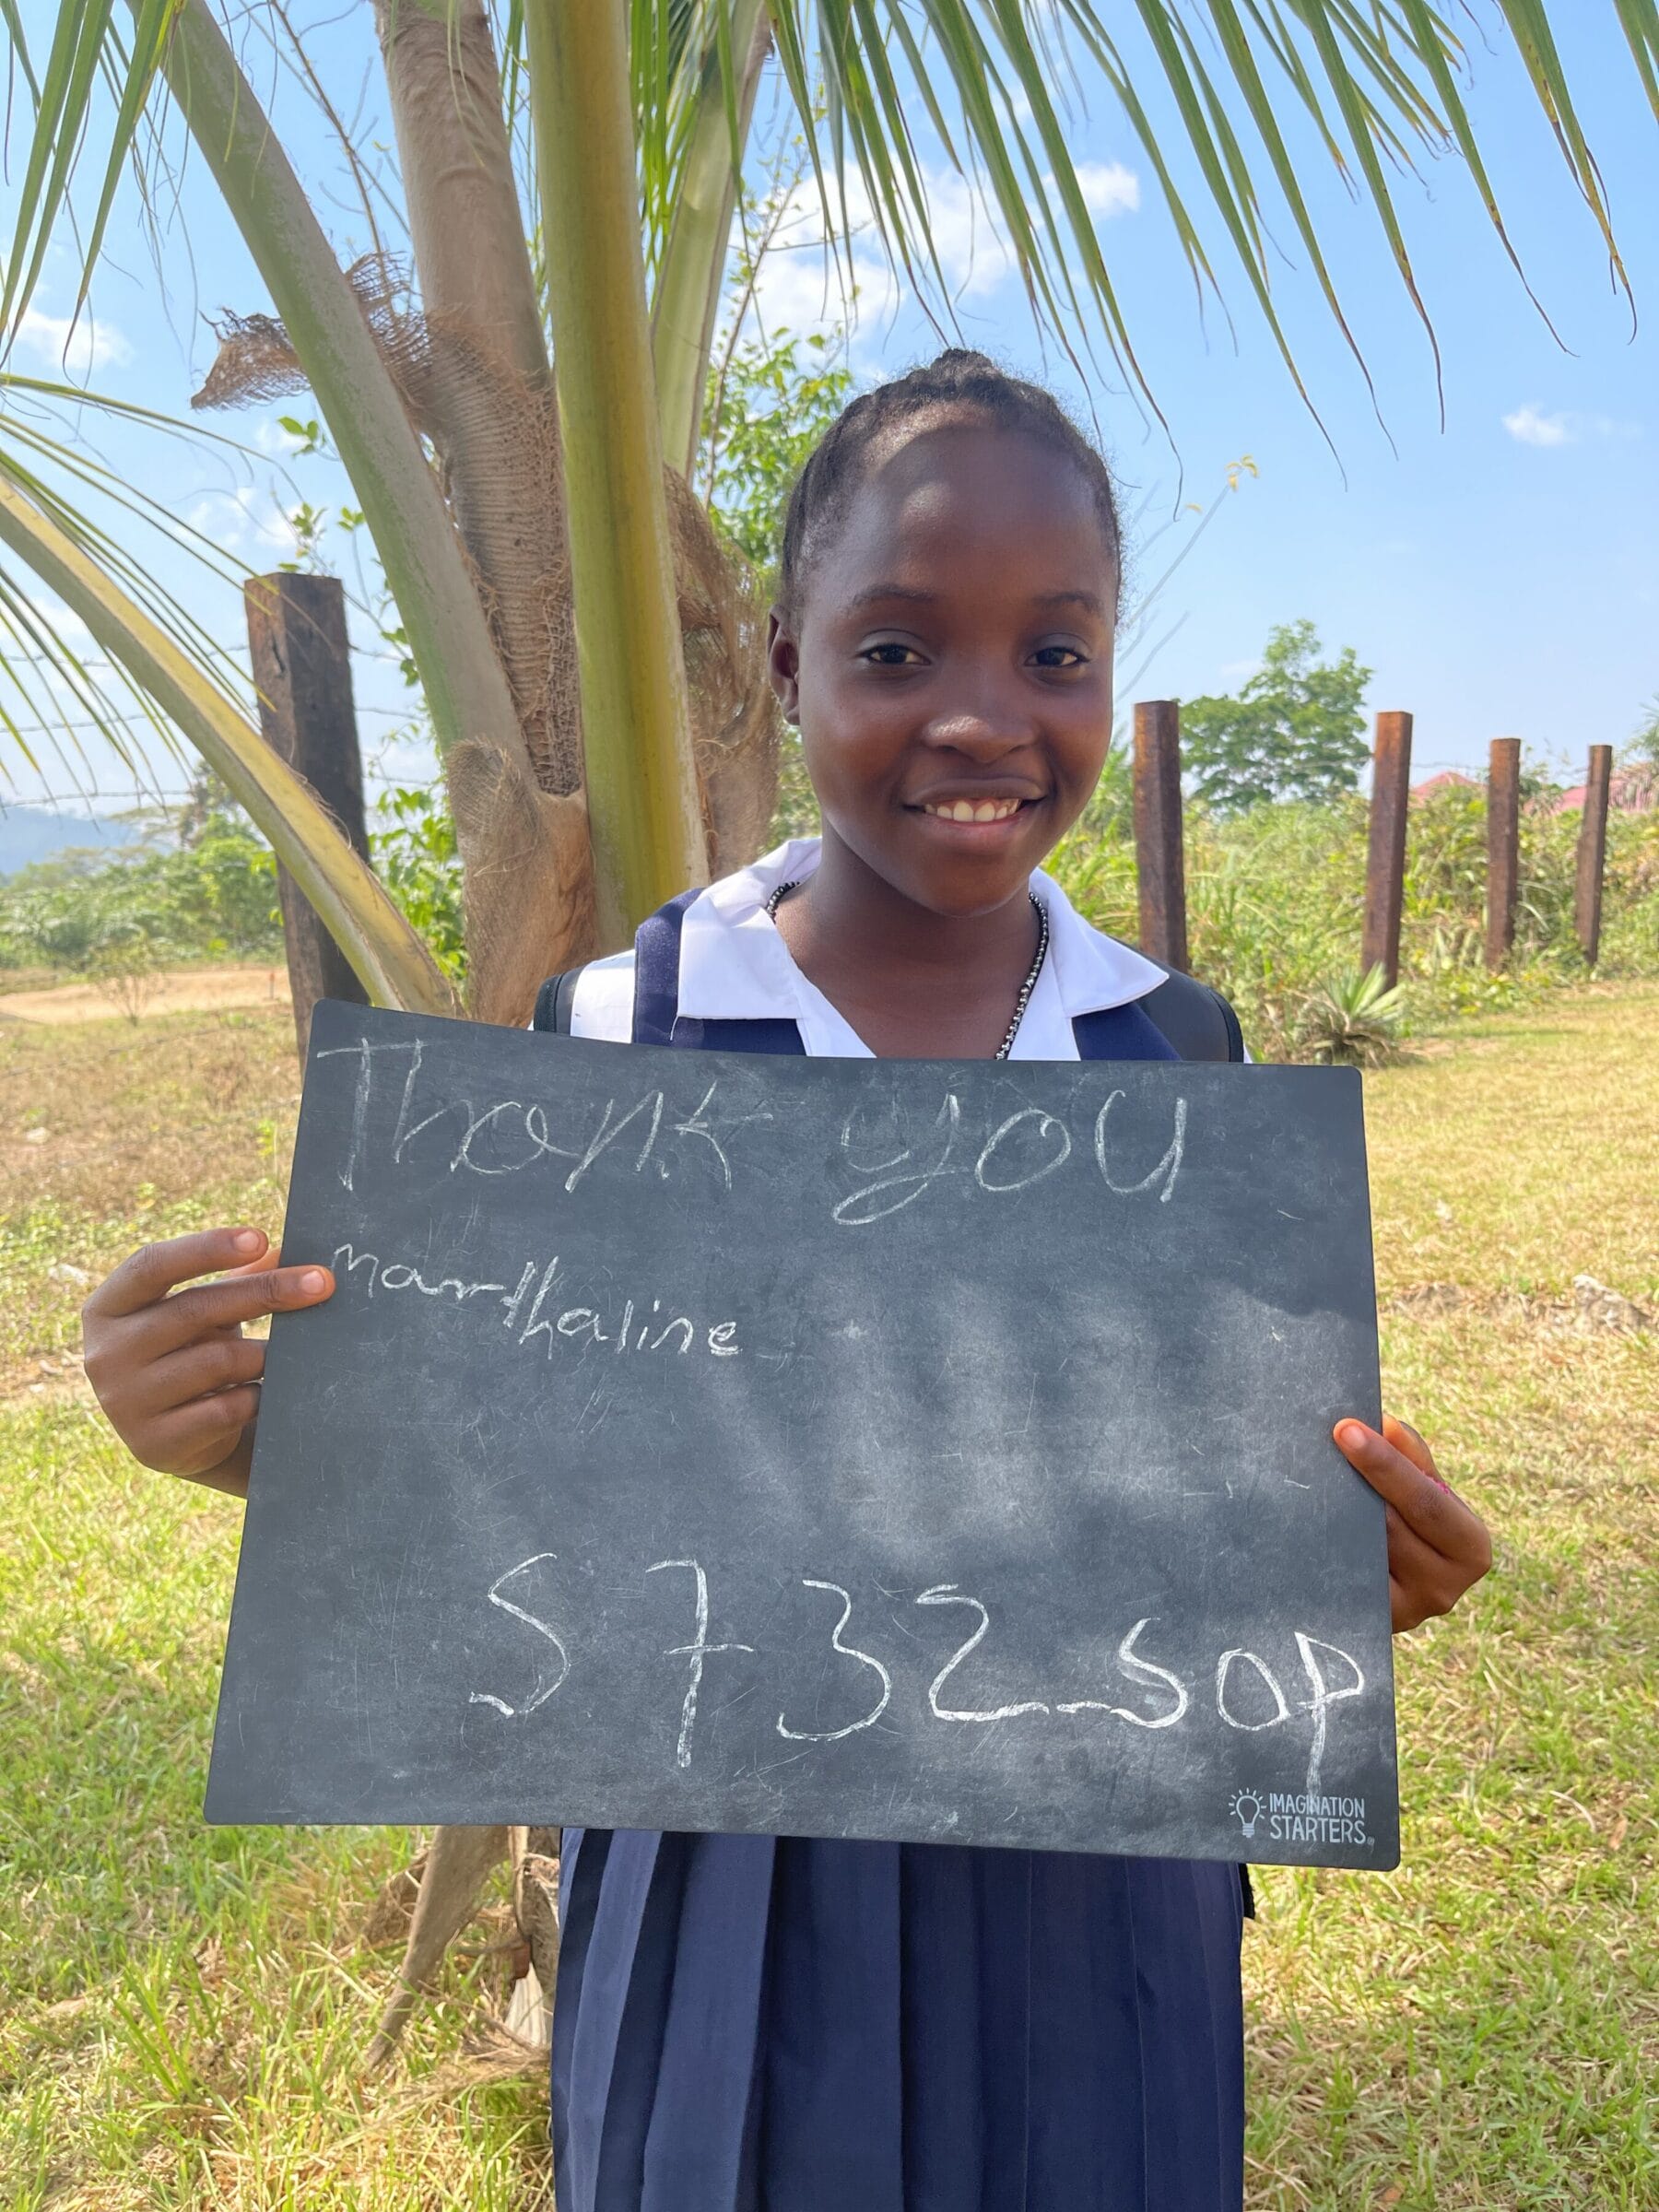 Thank you
Marthaline
5732_sop
IMAGINATION
STARTERS